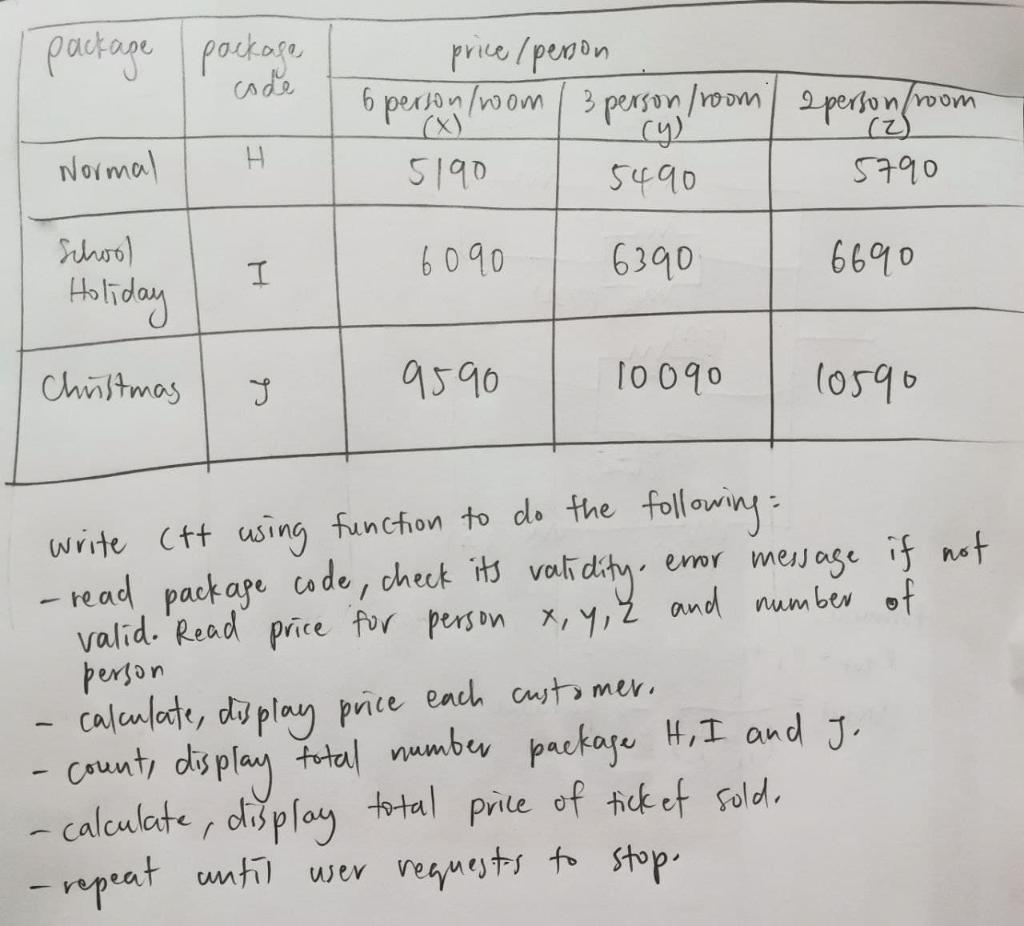 package package code price/person
6 person/room (x) 3 person/room (y) 2 person/room (z)
Normal H 5190 5490 5790
School Holiday I 6090 6390 6690
Christmas J 9590 10090 10590
write C++ using function to do the following:
- read package code, check its validity. error message if not
valid. Read price for person x, y, z and number of
person
- calculate, display price each customer.
- count, display total number package H, I and J.
- calculate, display total price of ticket sold.
- repeat until user requests to stop.